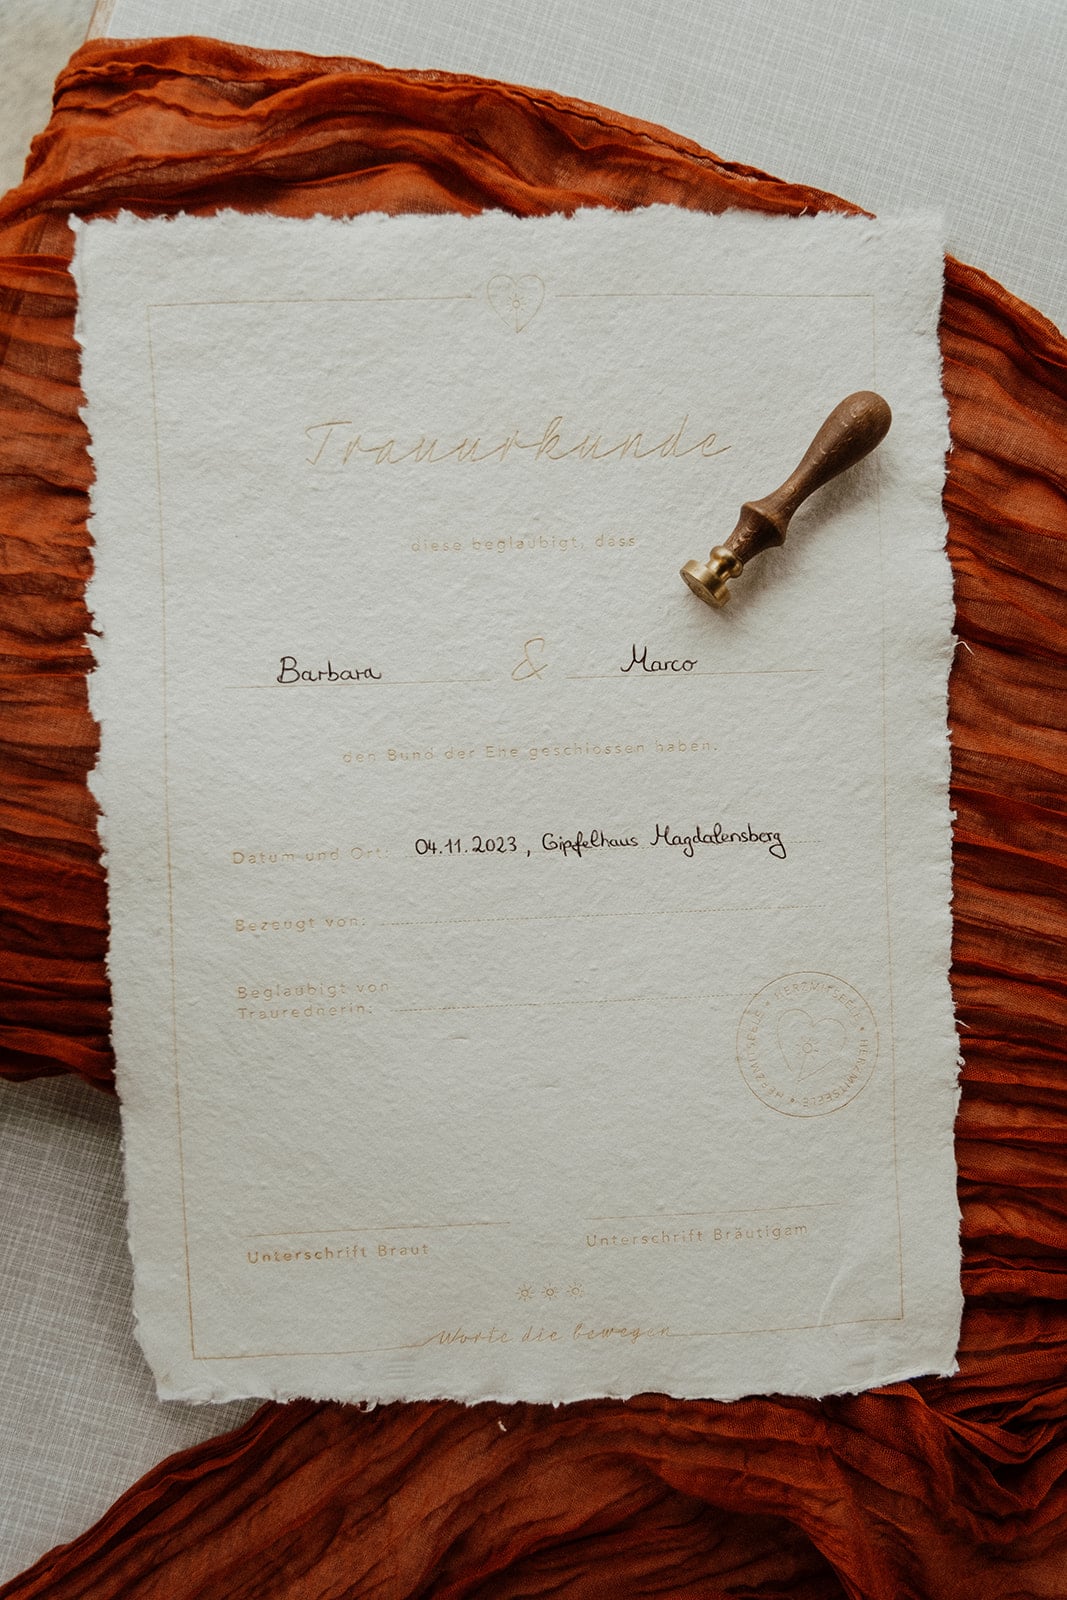 Trauurkunde
diese beglaubigt, dass
Barbara & Marco
den Bund der Ehe geschlossen haben.
Datum und Ort: 04.11.2023, Gipfelhaus Magdalensberg
Bezeugt von:
Beglaubigt von
Traurednerin:
HERZMITSEELE • HERZMITSEELE • HERZMITSEELE •
Unterschrift Braut
Unterschrift Bräutigam
Worte die bewegen